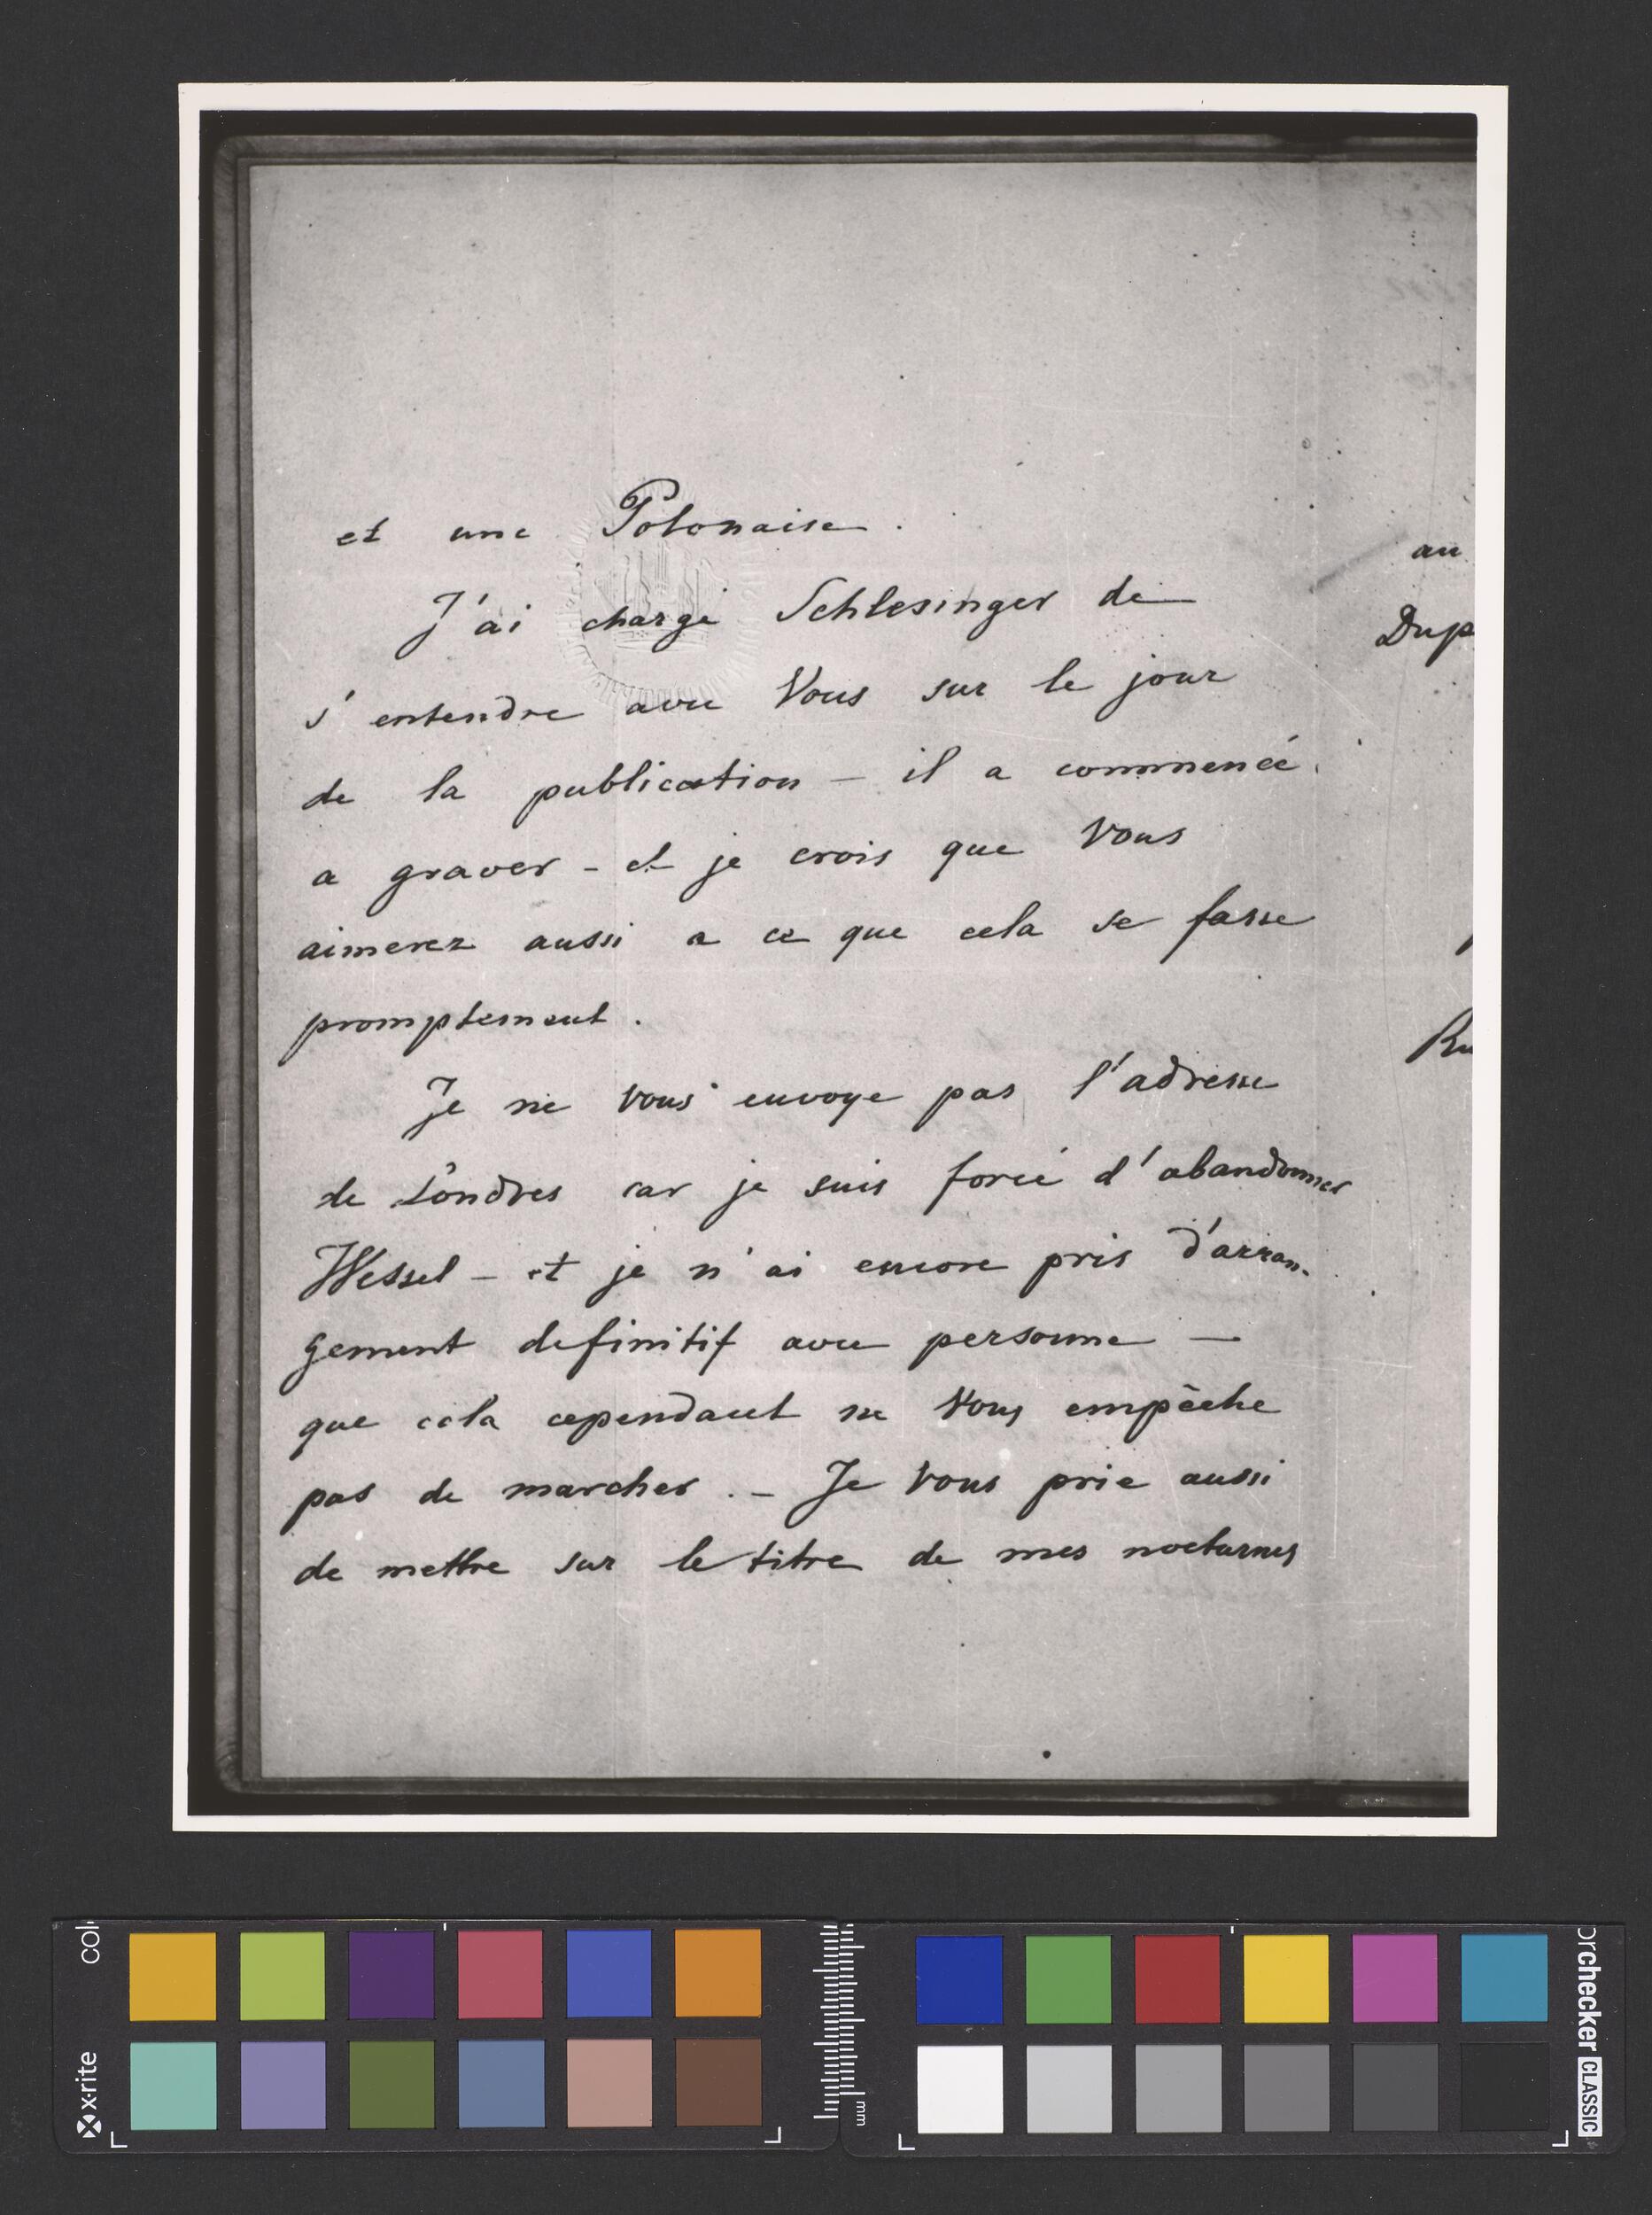 et une Polonaise.
J'ai chargé Schlesinger de
s'entendre avec Vous sur le jour
de la publication – il a commencé
a graver – et je crois que Vous
aimerez aussi a ce que cela se fasse
promptement.
Je ne vous envoye pas l'adresse
de Londres car je suis forcé d'abandonner
Wessel – et je n'ai encore pris d'arran-
gement definitif avec personne —
que cela cependant ne Vous empêche
pas de marcher. – Je Vous prie aussi
de mettre sur le titre de mes nocturnes
au
Dup
Ru
x·rite
colorchecker CLASSIC
mm